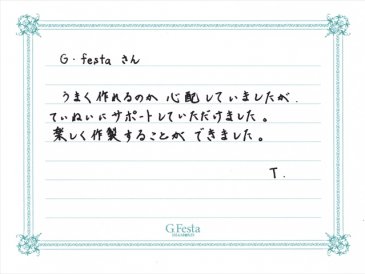 G・festa さん
うまく作れるのか 心配していましたが、
ていねいに サポートしていただけました。
楽しく作製することが できました。
T.
G.Festa